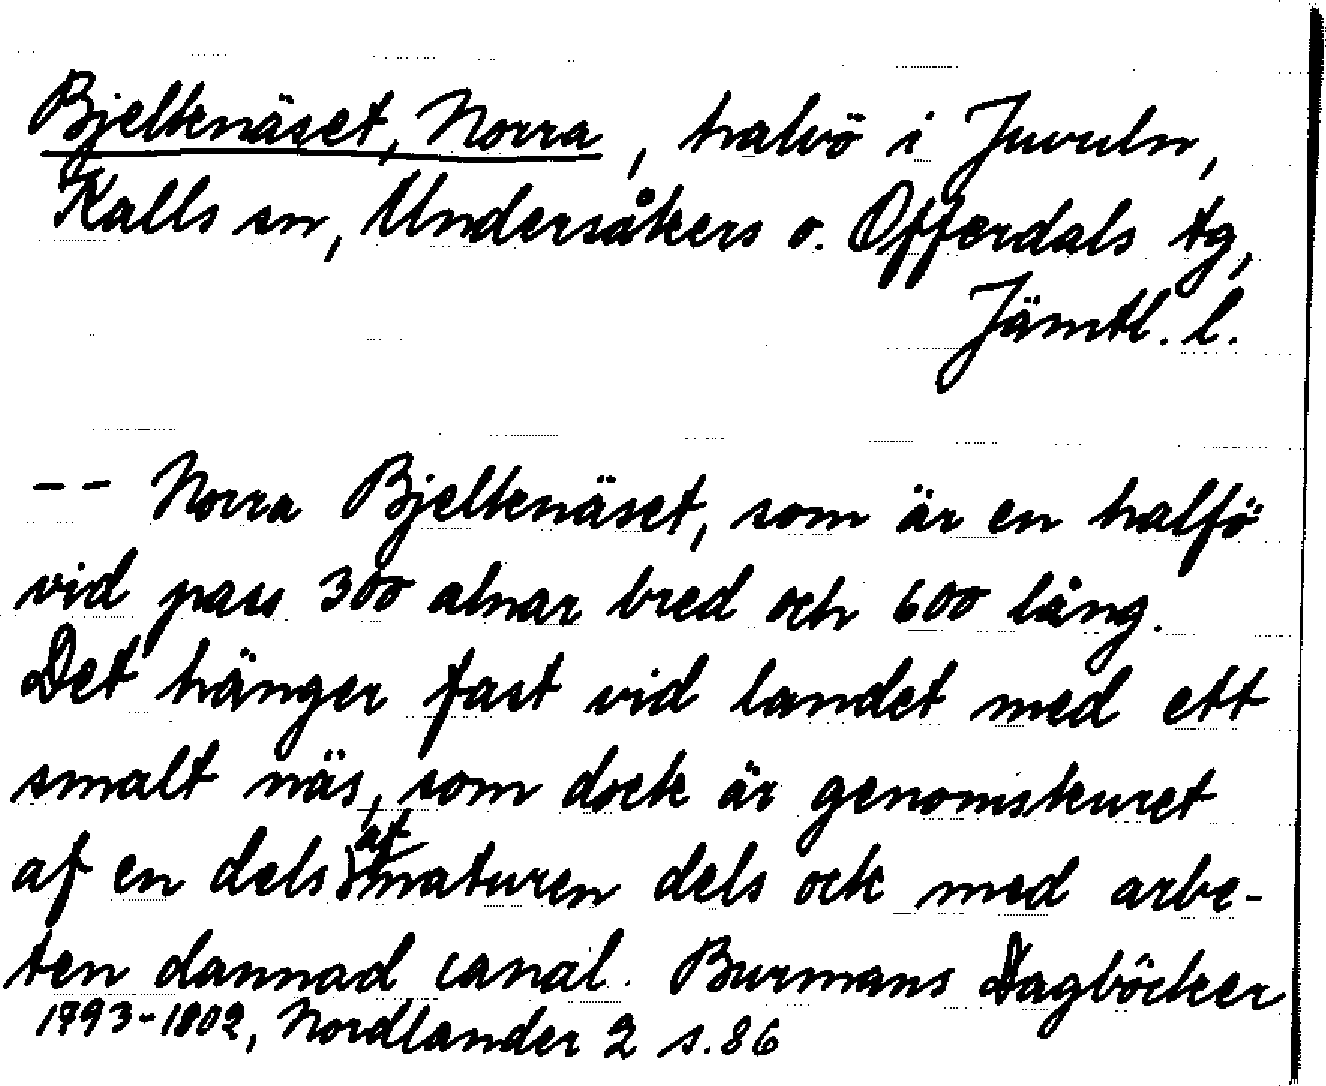 Bjelkenäset, Norra, halvö i Juvuln,
Kalls sn, Undersåkers o. Offerdals tg,
Jämtl. l.
-- Norra Bjelkenäset, som är en halfö
vid pass 300 alnar bred och 600 lång.
Det hänger fast vid landet med ett
smalt näs, som dock är genomskuret
af en dels af naturen dels ock med arbe-
ten dannad canal. Burmans Dagböcker
1793-1802, Nordlander 2 s.86